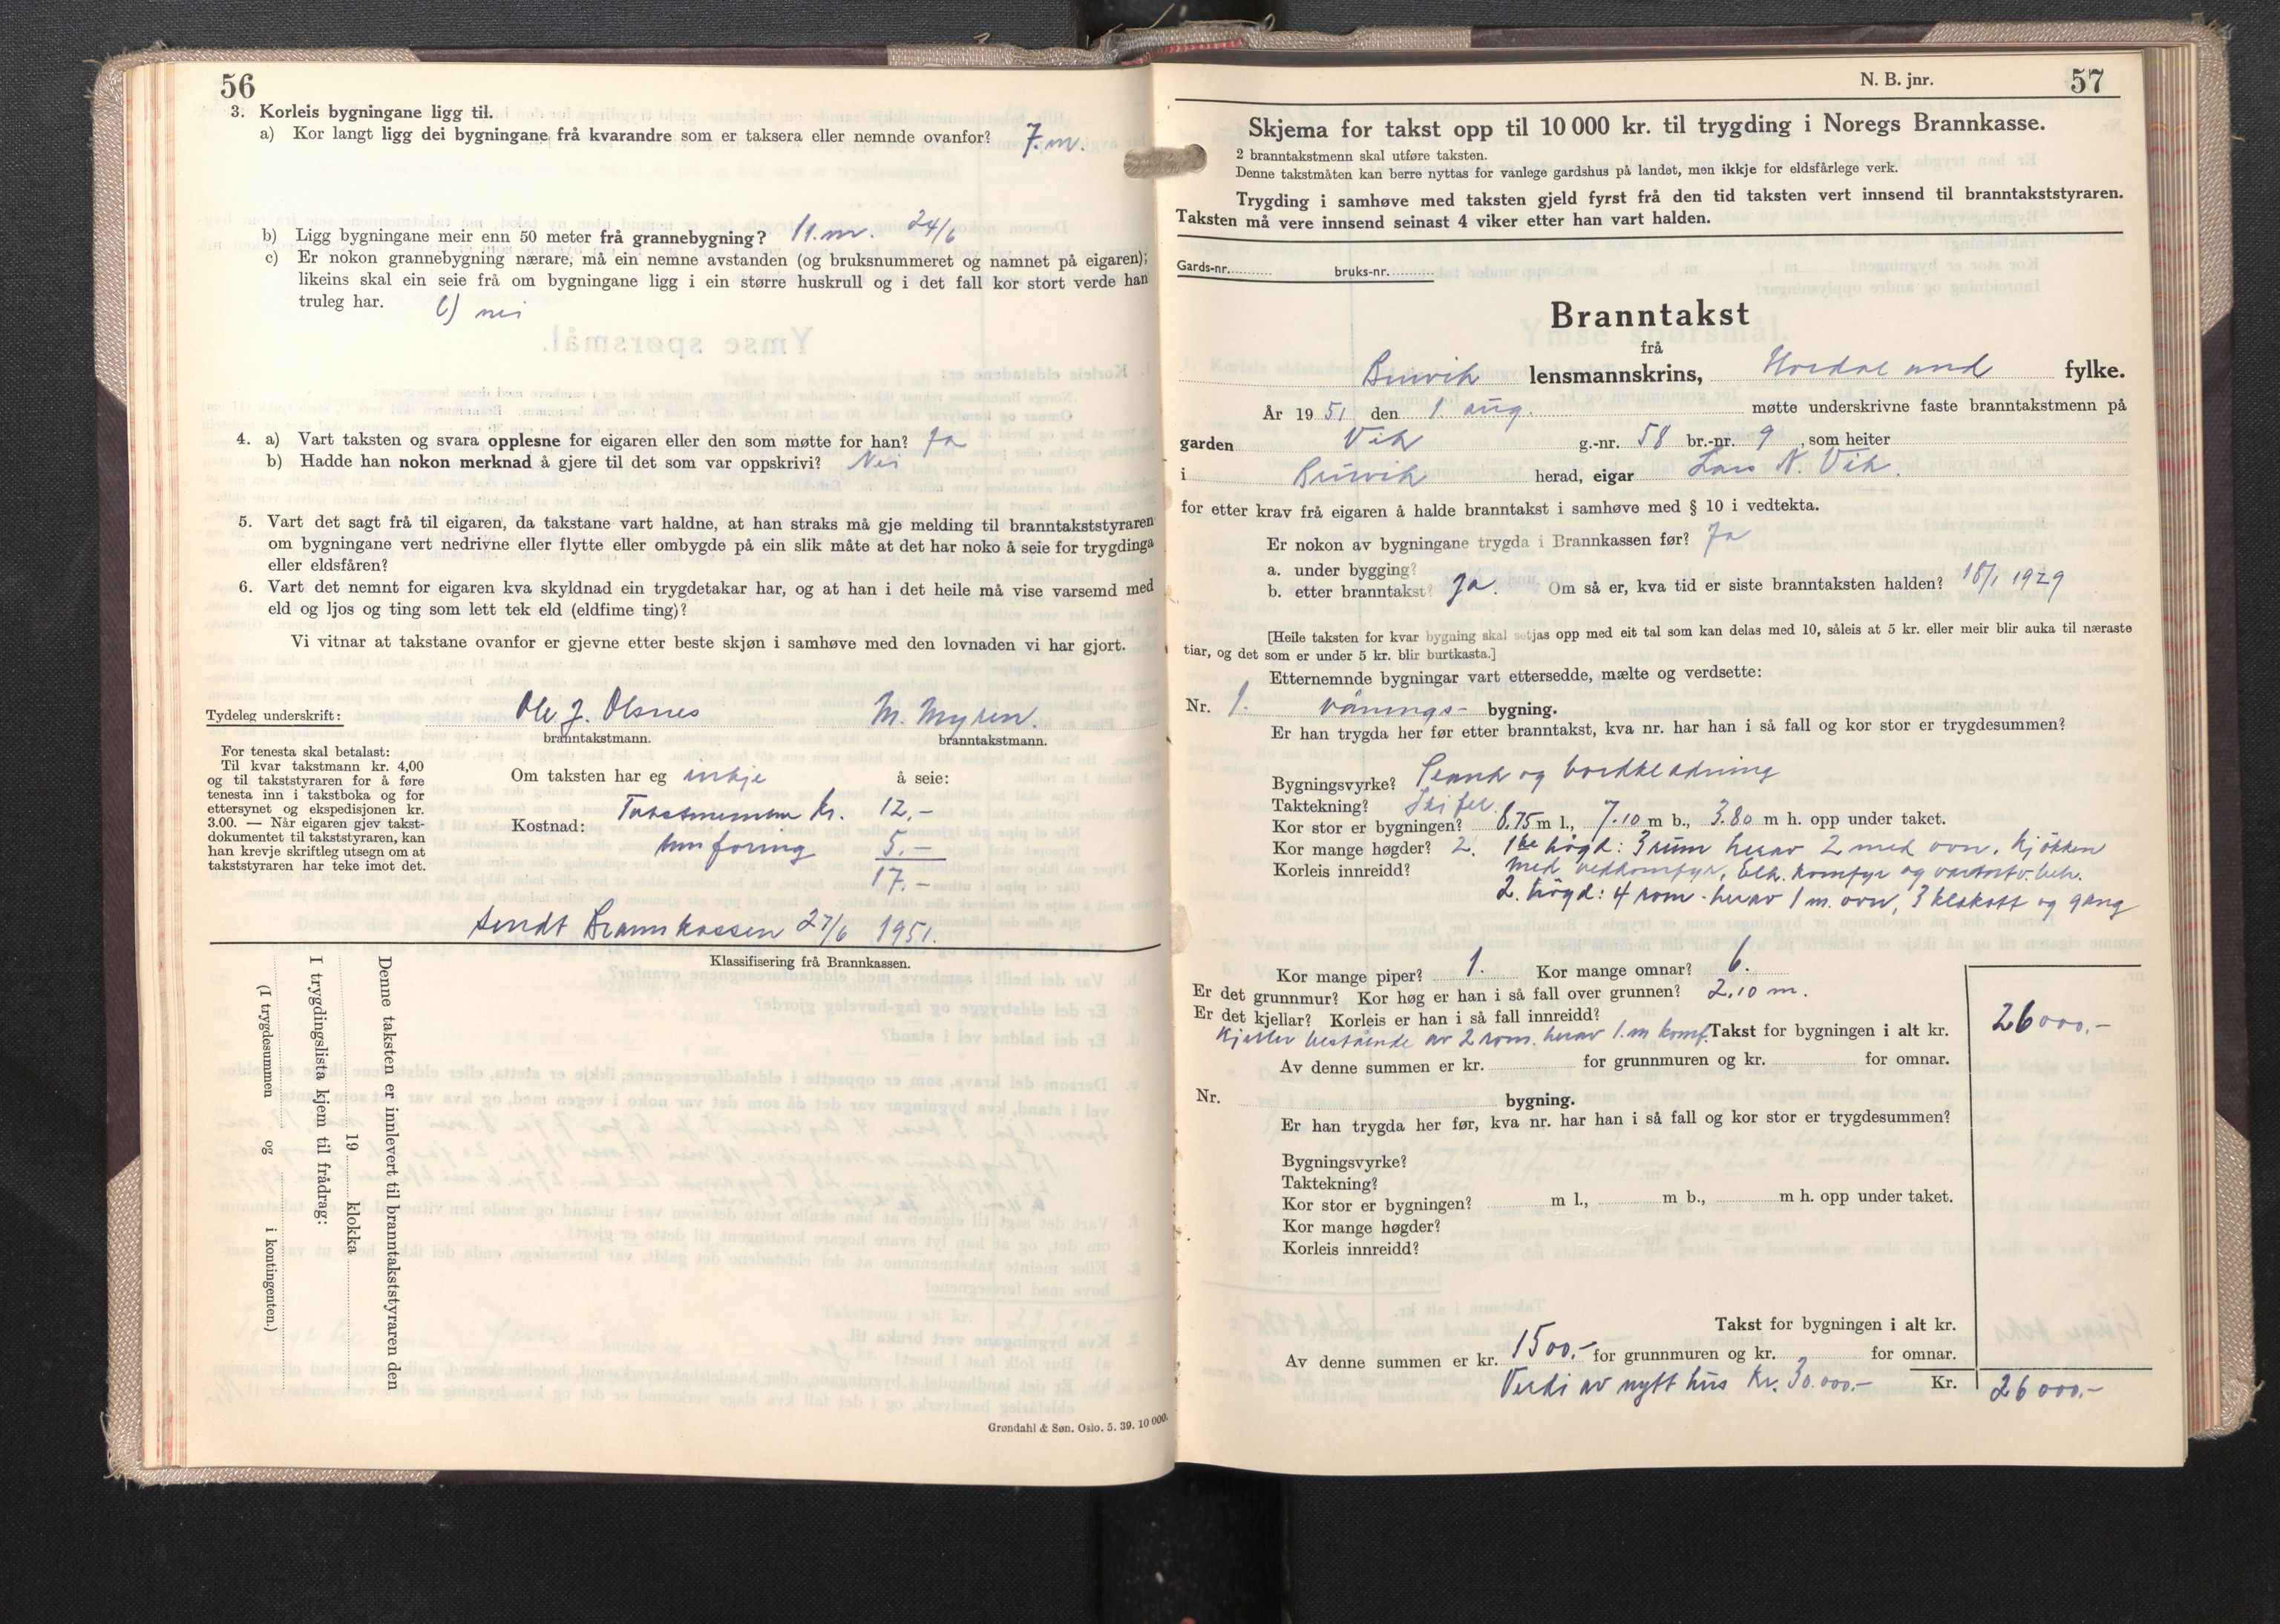 56
3. Korleis bygningane ligg til.
a) Kor langt ligg dei bygningane frå kvarandre som er taksera eller nemnde ovanfor? 7. m.
b) Ligg bygningane meir enn 50 meter frå grannebygning? 11. m. 24/6
c) Er nokon grannebygning nærare, må ein nemne avstanden (og bruksnummeret og namnet på eigaren);
likeins skal ein seie frå om bygningane ligg i ein større huskrull og i det fall kor stort verde han
truleg har. c) nei
4. a) Vart taksten og svara opplesne for eigaren eller den som møtte for han? Ja
b) Hadde han nokon merknad å gjere til det som var oppskrivi? Nei
5. Vart det sagt frå til eigaren, da takstane vart haldne, at han straks må gje melding til branntakststyraren
om bygningane vert nedrivne eller flytte eller ombygde på ein slik måte at det har noko å seie for trygdinga
eller eldsfåren?
6. Vart det nemnt for eigaren kva skyldnad ein trygdetakar har, og at han i det heile må vise varsemd med
eld og ljos og ting som lett tek eld (eldfime ting)?
Vi vitnar at takstane ovanfor er gjevne etter beste skjøn i samhøve med den lovnaden vi har gjort.
Tydeleg underskrift: Ole J. Olsnes M. Myren.
branntakstmann. branntakstmann.
For tenesta skal betalast:
Til kvar takstmann kr. 4,00
og til takststyraren for å føre
tenesta inn i takstboka og for
ettersynet og ekspedisjonen kr.
3.00. — Når eigaren gjev takst-
dokumentet til takststyraren, kan
han krevje skriftleg utsegn om at
takststyraren har teke imot det.
Om taksten har eg inkje å seie:
Kostnad: Takstmennene kr. 12,-
innføring 5.-
17.-
Sendt Brannkassen 27/6 1951.
Klassifisering frå Brannkassen.
Denne taksten er innlevert til branntakststyraren den
19 klokka
I trygdingslista kjem til frådrag:
(I trygdesummen og i kontingenten.)
Grøndahl & Søn. Oslo. 5. 39. 10 000.
N. B. jnr. 57
Skjema for takst opp til 10 000 kr. til trygding i Noregs Brannkasse.
2 branntakstmenn skal utføre taksten.
Denne takstmåten kan berre nyttas for vanlege gardshus på landet, men ikkje for eldsfårlege verk.
Trygding i samhøve med taksten gjeld fyrst frå den tid taksten vert innsend til branntakststyraren.
Taksten må vere innsend seinast 4 viker etter han vart halden.
Gards-nr. bruks-nr.
Branntakst
frå
Bruvik lensmannskrins, Hordaland fylke.
År 1951 den 1. aug. møtte underskrivne faste branntakstmenn på
garden Vik g.-nr. 58 br.-nr. 9, som heiter
i Bruvik herad, eigar Lars N. Vik.
for etter krav frå eigaren å halde branntakst i samhøve med § 10 i vedtekta.
Er nokon av bygningane trygda i Brannkassen før? Ja
a. under bygging?
b. etter branntakst? Ja. Om så er, kva tid er siste branntaksten halden? 18/1 1929
[Heile taksten for kvar bygning skal setjas opp med eit tal som kan delas med 10, såleis at 5 kr. eller meir blir auka til næraste
tiar, og det som er under 5 kr. blir burtkasta.]
Etternemnde bygningar vart ettersedde, mælte og verdsette:
Nr. 1. vånings- bygning.
Er han trygda her før etter branntakst, kva nr. har han i så fall og kor stor er trygdesummen?
Bygningsvyrke? Plank og bordkledning
Taktekning? Skifer.
Kor stor er bygningen? 8.75 m l., 7.10 m b., 3.80 m h. opp under taket.
Kor mange høgder? 2. 1ste høgd: 3 rum herav 2 med ovn. kjøkken
Korleis innreidd? med vedkomfyr, elk. komfyr og
2. høgd: 4 rom. herav 1 m. ovn, 3 kleskott og gang
Kor mange piper? 1. Kor mange omnar? 6.
Er det grunnmur? Kor høg er han i så fall over grunnen? 2.10 m.
Er det kjellar? Korleis er han i så fall innreidd?
Kjeller bestående av 2 rom. herav 1. m komf. Takst for bygningen i alt kr. 26000.-
Av denne summen er kr. for grunnmuren og kr. for omnar.
Nr. bygning.
Er han trygda her før, kva nr. har han i så fall og kor stor er trygdesummen?
Bygningsvyrke?
Taktekning?
Kor stor er bygningen? m l., m b., m h. opp under taket.
Kor mange høgder?
Korleis innreidd?
Takst for bygningen i alt kr.
Av denne summen er kr. 1500.- for grunnmuren og kr. for omnar.
Verdi av nytt hus kr. 30.000.- Kr. 26000.-